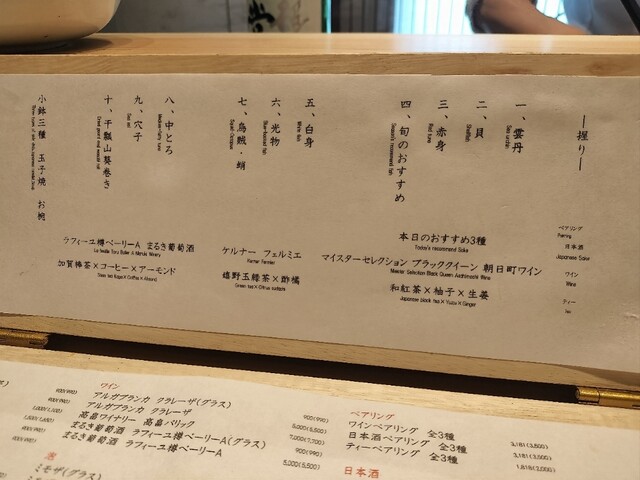 ―握り―
一、雲丹
Sea urchin
二、貝
Shellfish
三、赤身
Red tuna
四、旬のおすすめ
Season's recommend fish
五、白身
White fish
六、光物
Blue-backed fish
七、烏賊・蛸
Squid・Octopus
八、中とろ
Medium-fatty tuna
九、穴子
Sea eel
十、干瓢山葵巻き
小鉢三種 玉子焼 お椀
ペアリング
Pairing
日本酒
Japanese Sake
本日のおすすめ3種
Today's recommend Sake
ワイン
Wine
マイスターセレクション ブラッククイーン 朝日町ワイン
Meister Selection Black Queen Asahimachi Wine
ケルナー フェルミエ
Kerner Fermier
ラフィーユ樽ベーリーA まるき葡萄酒
ティー
tea
和紅茶×柚子×生姜
Japanese black tea×Yuzu×Ginger
嬉野玉緑茶×酢橘
Green tea×Citrus sudachi
加賀棒茶×コーヒー×アーモンド
ワイン
アルガブランカ クラレーザ(グラス) 900(990)
アルガブランカ クラレーザ 5,000(5,500)
高畠ワイナリー 高畠バリック 7,000(7,700)
まるき葡萄酒 ラフィーユ樽ベーリーA(グラス) 900(990)
まるき葡萄酒 ラフィーユ樽ベーリーA 5,000(5,500)
ペアリング
ワインペアリング 全3種 3,181(3,500)
日本酒ペアリング 全3種 3,181(3,500)
ティーペアリング 全3種 1,818(2,000)
日本酒
泡
ミモザ(グラス)